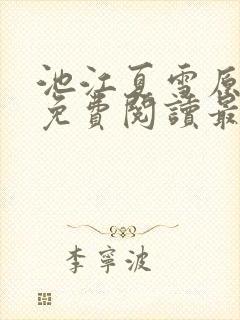 池江夏雪原
免費閱讀最
李寧波